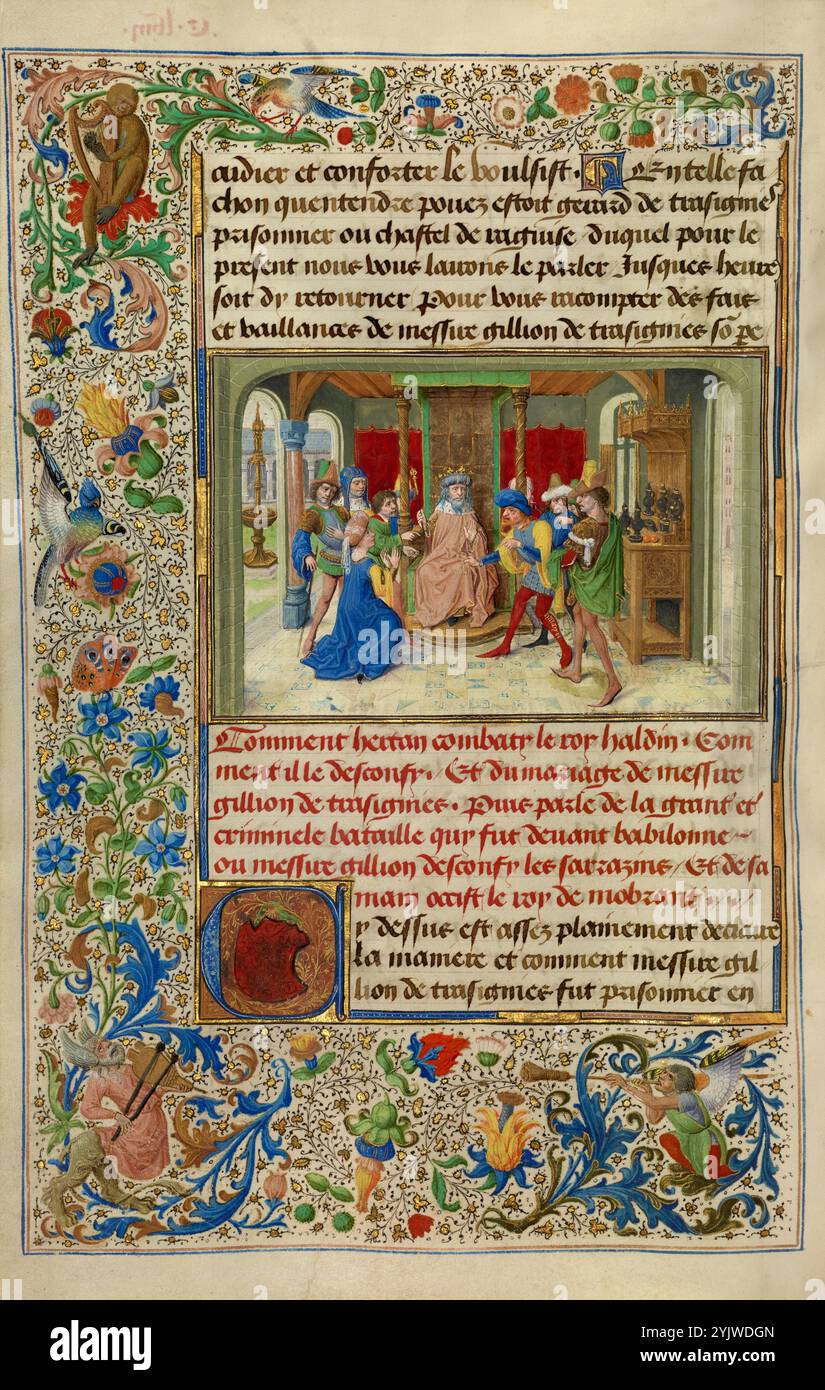 aidier et conforter le voulsist. En telle fa
chon quentendre pouez estoit gerard de trasignies
prisonnier ou chastel de raguise. duquel pour le
present nous vous lairons le parler Jusques heure
soit dy retourner Pour vous racompter des fais
et vaillances de messire gillion de trasignies so pe
Comment hertan combaty le roy haldin. Com
ment il le desconfy. Et du mariage de messire
gillion de trasignies. Puis parle de la grant et
criminele bataille quy fut deuant babilonne
ou messire gillion desconfy les sarrazins / Et de sa
main occist le roy de mobrant
Cy dessus est assez plainement declaire
la maniere et comment messire gil
lion de trasignies fut prisonnier en
alamy
Image ID: 2YJWDGN
www.alamy.com